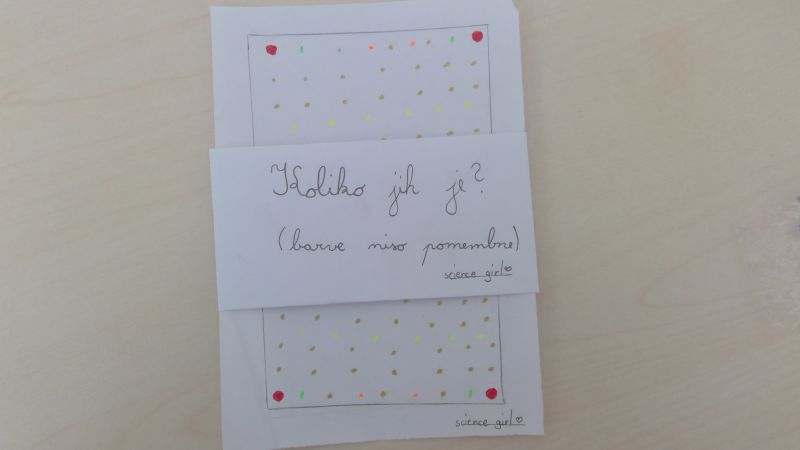 Koliko jih je?
(barve niso pomembne)
science girl♡
science girl♡